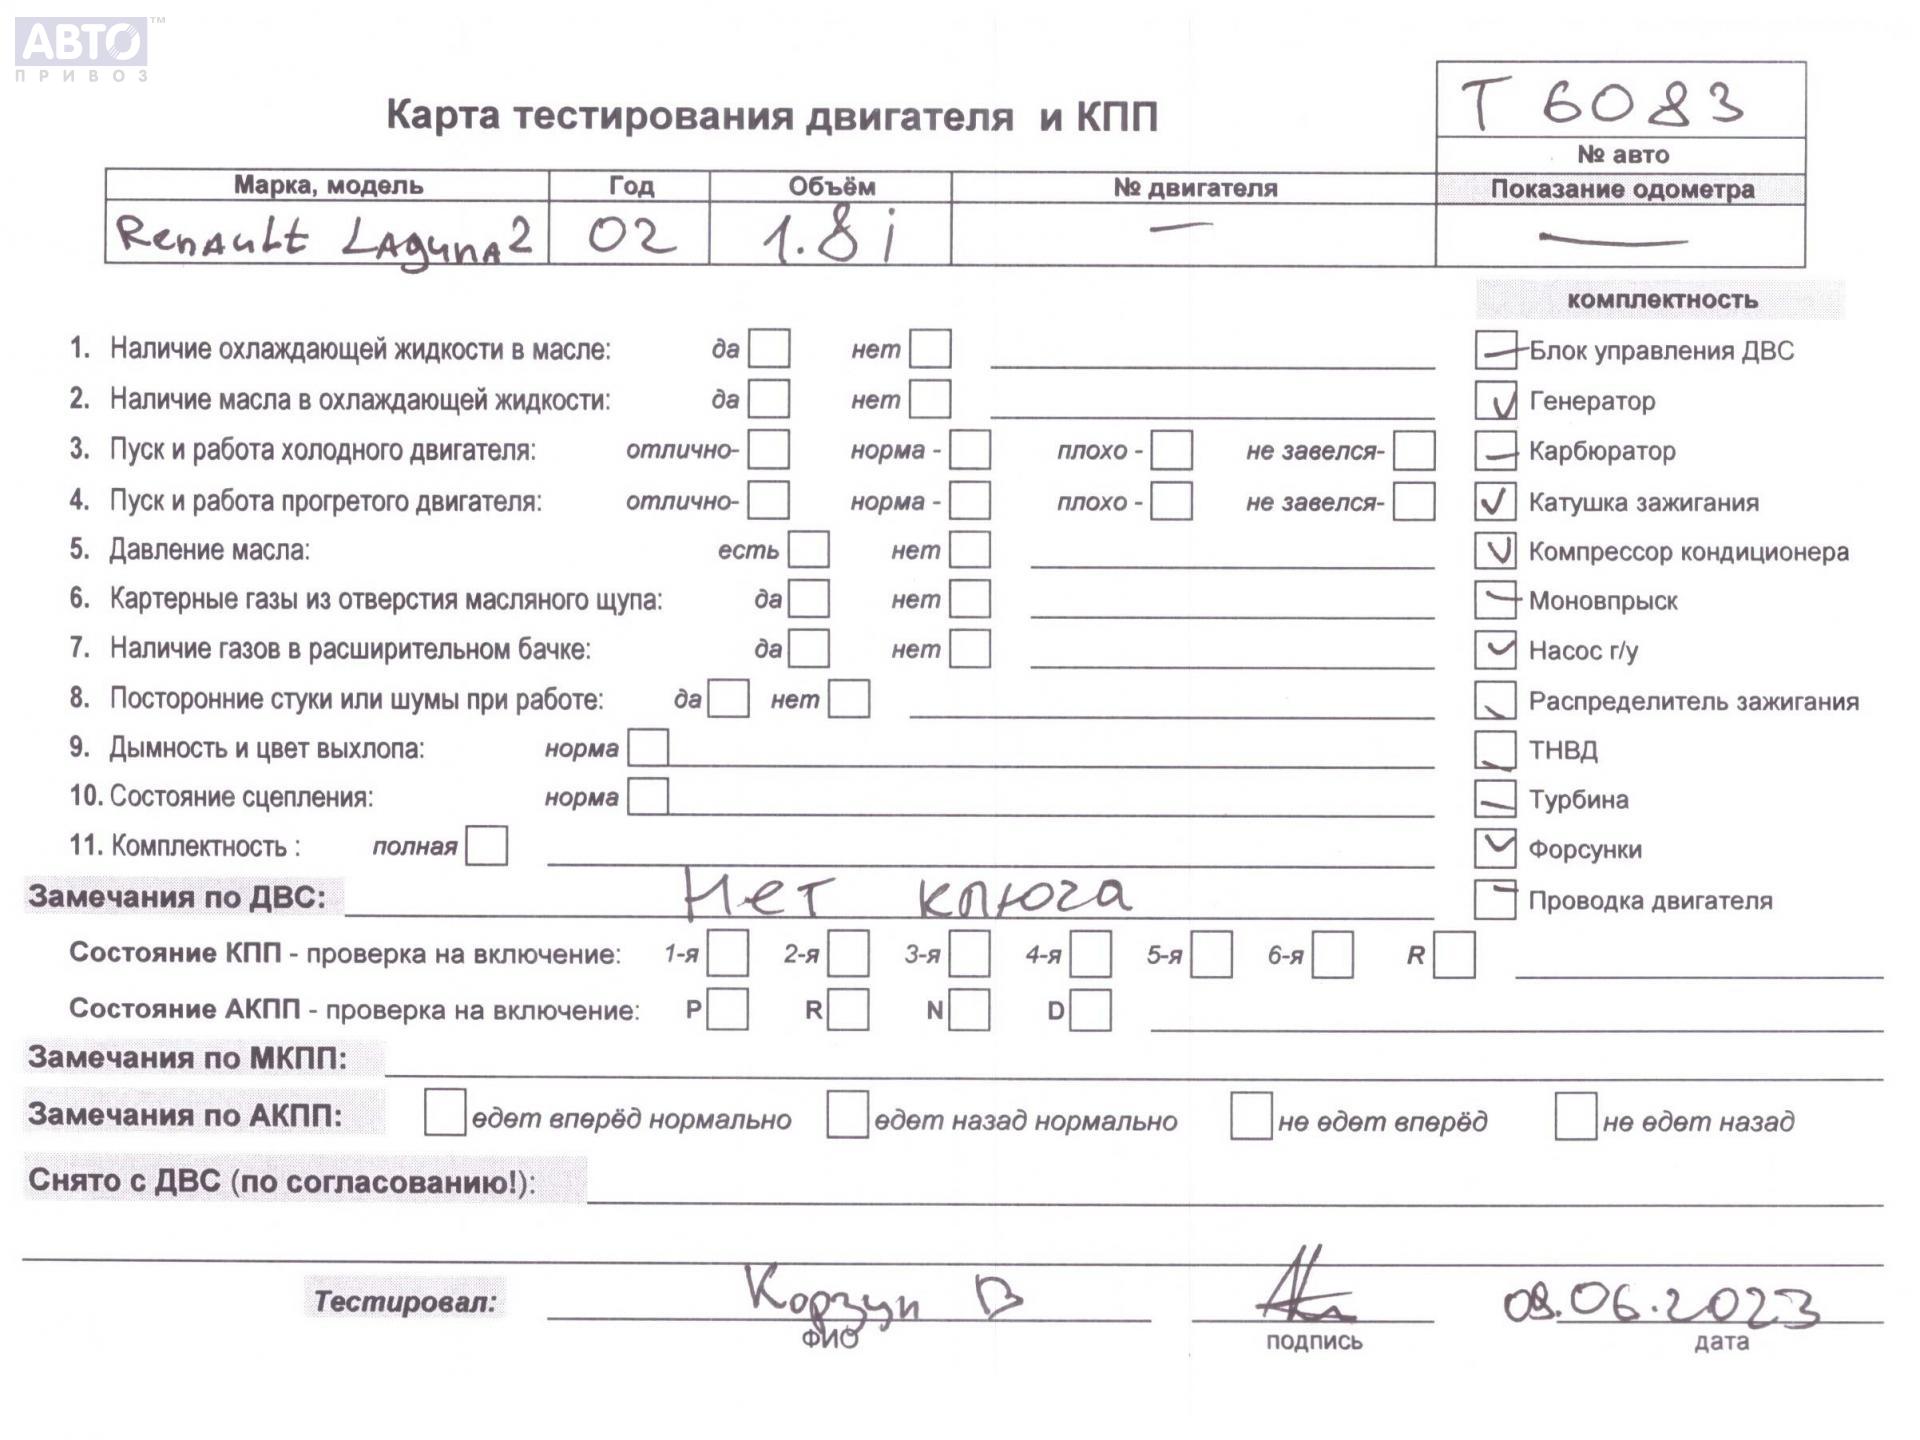 АВТО™
ПРИВОЗ
Карта тестирования двигателя и КПП
Т 6083
№ авто
Марка, модель Год Объём № двигателя Показание одометра
Renault Laguna 2 02 1.8 i — —
комплектность
1. Наличие охлаждающей жидкости в масле: да нет
Блок управления ДВС
2. Наличие масла в охлаждающей жидкости: да нет
Генератор
3. Пуск и работа холодного двигателя: отлично- норма - плохо - не завелся-
Карбюратор
4. Пуск и работа прогретого двигателя: отлично- норма - плохо - не завелся-
Катушка зажигания
5. Давление масла: есть нет
Компрессор кондиционера
6. Картерные газы из отверстия масляного щупа: да нет
Моновпрыск
7. Наличие газов в расширительном бачке: да нет
Насос г/у
8. Посторонние стуки или шумы при работе: да нет
Распределитель зажигания
9. Дымность и цвет выхлопа: норма
ТНВД
10. Состояние сцепления: норма
Турбина
11. Комплектность : полная
Форсунки
Замечания по ДВС: Нет ключа
Проводка двигателя
Состояние КПП - проверка на включение: 1-я 2-я 3-я 4-я 5-я 6-я R
Состояние АКПП - проверка на включение: P R N D
Замечания по МКПП:
Замечания по АКПП: едет вперёд нормально едет назад нормально не едет вперёд не едет назад
Снято с ДВС (по согласованию!):
Тестировал: Корзун В .06.2023
ФИО подпись дата